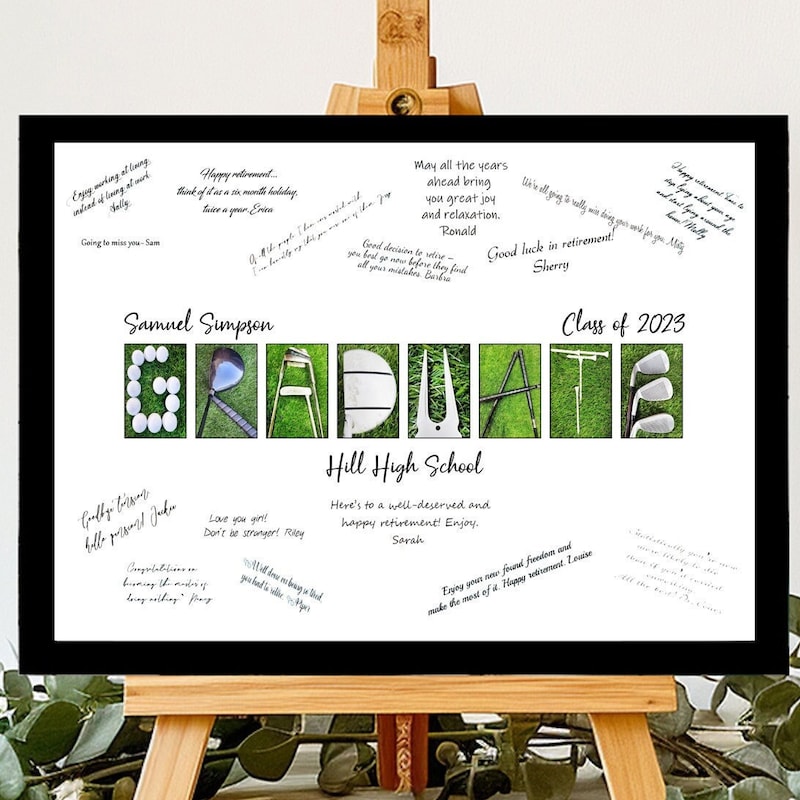 Enjoy working at living,
instead of living at work
Sally.
Happy retirement...
think of it as a six month holiday,
twice a year. Erica
May all the years
ahead bring
you great joy
and relaxation.
Ronald
We're all going to really miss doing your work for you.
Happy retirement time to
stop lying about your age
and start lying around the
house! Molly
Going to miss you- Sam
Of all the people I have ever worked with
you were one of them.
Good decision to retire –
you best go now before they find
all your mistakes. Barbra
Good luck in retirement!
Sherry
Samuel Simpson
Class of 2023
GRADUATE
Hill High School
Goodbye tension
hello pension! Jackie
Love you girl!
Don't be stranger! Riley
Here's to a well-deserved and
happy retirement! Enjoy.
Sarah
Congratulations on
becoming the master of
doing nothing"
Well done on being so old
you had to retire. Piper
Enjoy your new found freedom and
make the most of it. Happy retirement. Louise
All the best!